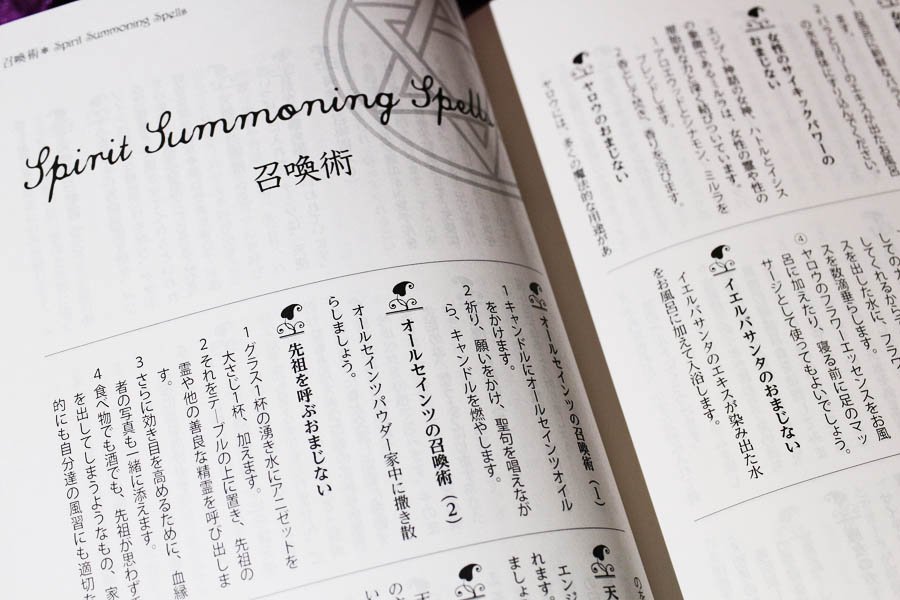 女性のサイキックパワーの
おまじない
エジプト神話の女神、ハトルとイシス
の象徴であるミルラは、女性の霊や性の
力と深く結びついています。
1 アロエウッドとシナモン、ミルラを
ブレンドします。
2 香として焚き、香りを浴びます。
ヤロウのおまじない
ヤロウには、多くの魔法的な用途があ
してくれるから
スを出した水に、フラワ
スを数滴垂らします。
④ ヤロウのフラワーエッセンスをお風
呂に加えたり、寝る前に足のマッ
サージとして使ってもよいでしょう。
イエルバサンタのおまじない
イエルバサンタのエキスが染み出た水
をお風呂に加えて入浴します。
召喚術✽ Spirit Summoning Spells
Spirit Summoning Spells
召喚術
オールセインツの召喚術（1）
1 キャンドルにオールセインツオイル
をかけます。
2 祈り、願いをかけ、聖句を唱えなが
ら、キャンドルを燃やします。
オールセインツの召喚術（2）
オールセインツパウダー家中に撒き散
らしましょう。
先祖を呼ぶおまじない
1 グラス1杯の湧き水にアニゼットを
大さじ1杯、加えます。
2 それをテーブルの上に置き、先祖の
霊や他の善良な精霊を呼び出しま
す。
3 さらに効き目を高めるために、血縁
者の写真も一緒に添えます。
4 食べ物でも酒でも、先祖が思わず手
を出してしまうようなもの、家
的にも自分達の風習にも適切な
天
エンジ
れます。
ましょ
天
の